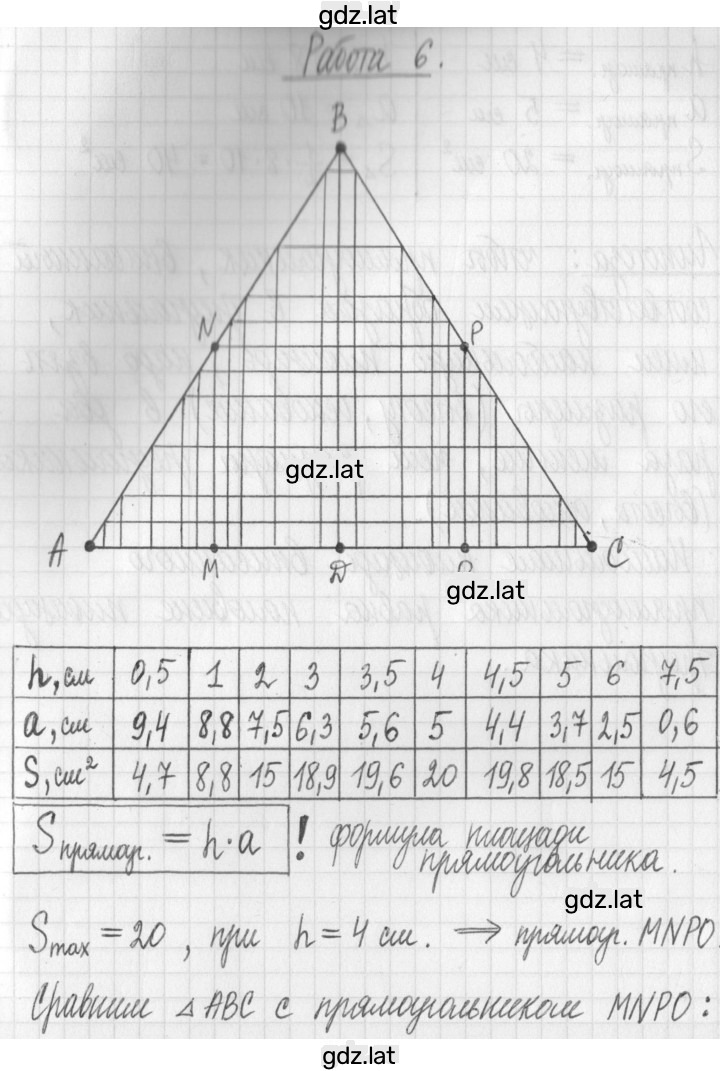 gdz.lat
Работа 6.
B
N
P
gdz.lat
A
C
M
D
O
gdz.lat
h, см 0,5 1 2 3 3,5 4 4,5 5 6 7,5
a, см 9,4 8,8 7,5 6,3 5,6 5 4,4 3,7 2,5 0,6
S, см² 4,7 8,8 15 18,9 19,6 20 19,8 18,5 15 4,5
Sпрямоуг. = h·a ! формула площади
прямоугольника.
gdz.lat
Smax = 20, при h = 4 см. ⟹ прямоуг. MNPO.
Сравним △ABC с прямоугольником MNPO:
gdz.lat